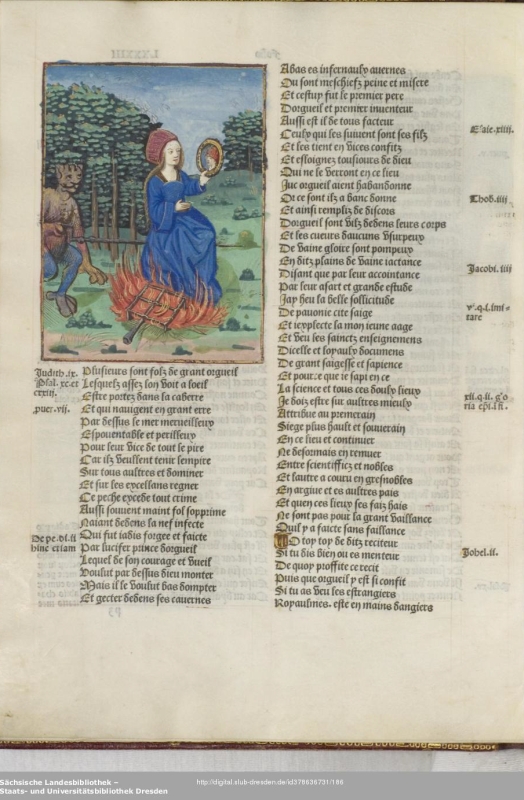 Judith. ix.
Psal. xc. et
cxiii.
puer. vii.
De pe. di. ii
hinc etiam
Plusieurs sont folz de grant orgueil
Lesquelz assez lon voit a loeil
Estre portez dans la caberre
Et qui nauigent en grant erre
Par dessus le mer merueilleux
Espouentable et perilleux
Pour leur vice de tout le pire
Car ilz veullent tenir lempire
Sur tous aultres et dominer
Et sur les excellans regner
Ce peche excede tout crime
Aussi souuent maint fol sopprime
Naiant dedens la nef infecte
Qui fut iadis forgee et faicte
Par lucifer prince dorgueil
Lequel de son courage et vueil
Voulut par dessus dieu monter
Mais il le voulut bas dompter
Et gecter dedens ses cauernes
Abas es infernaulx auernes
Ou sont meschiefz peine et misere
Et cestup fut le premier pere
Dorgueil et premier inuenteur
Aussi est il de tous facteur
Ceulx qui les suiuent sont ses filz
Et les tient en vices confitz
Et esloignez tousiours de dieu
Qui ne le verront en ce lieu
Jue orgueil aient habandonne
Ot ce sont ilz a danc donne
Et ainsi rempliz de discors
Dorgueil sont vilz dedens leurs corps
Et les cueurs daucuns vsurpeux
De vaine gloire sont pompeux
En ditz plains de vaine iactance
Disant que par leur accointance
Par leur asart et grande estude
Jay heu la belle sollicitude
De pauonie cite saige
Et iexplecte la mon ieune aage
Et veu les sainctz enseignemens
Dicelle et loyaulx documens
De grant saigesse et sapience
Et pource que ie sapi en ce
La science et tous ces doulx lieux
Je doiz estre sur aultres mieulx
Attribue au premerain
Siege plus hault et souuerain
En ce lieu et continuer
Ne desormais en remuer
Entre scientifficz et nobles
Et lautre a couru en gresnobles
En argiue et es aultres pais
Et quen ces lieux ses faiz hais
Ne sont pas pour la grant vaillance
Quil y a faicte sans faillance
O toy toy de ditz reciteur
Si tu dis bien ou es menteur
De quoy proffite ce recit
Puis que orgueil y est si confit
Si tu as veu les estrangiers
Royaulmes. este en mains dangiers
Esaie. xiiii.
Thob. iiii
Jacobi. iiii
v. q. i. imi=
tare
xii. q. ii. glo
ria epi. sñ.
Johel. ii.
Sächsische Landesbibliothek –
Staats- und Universitätsbibliothek Dresden
http://digital.slub-dresden.de/id378636731/186